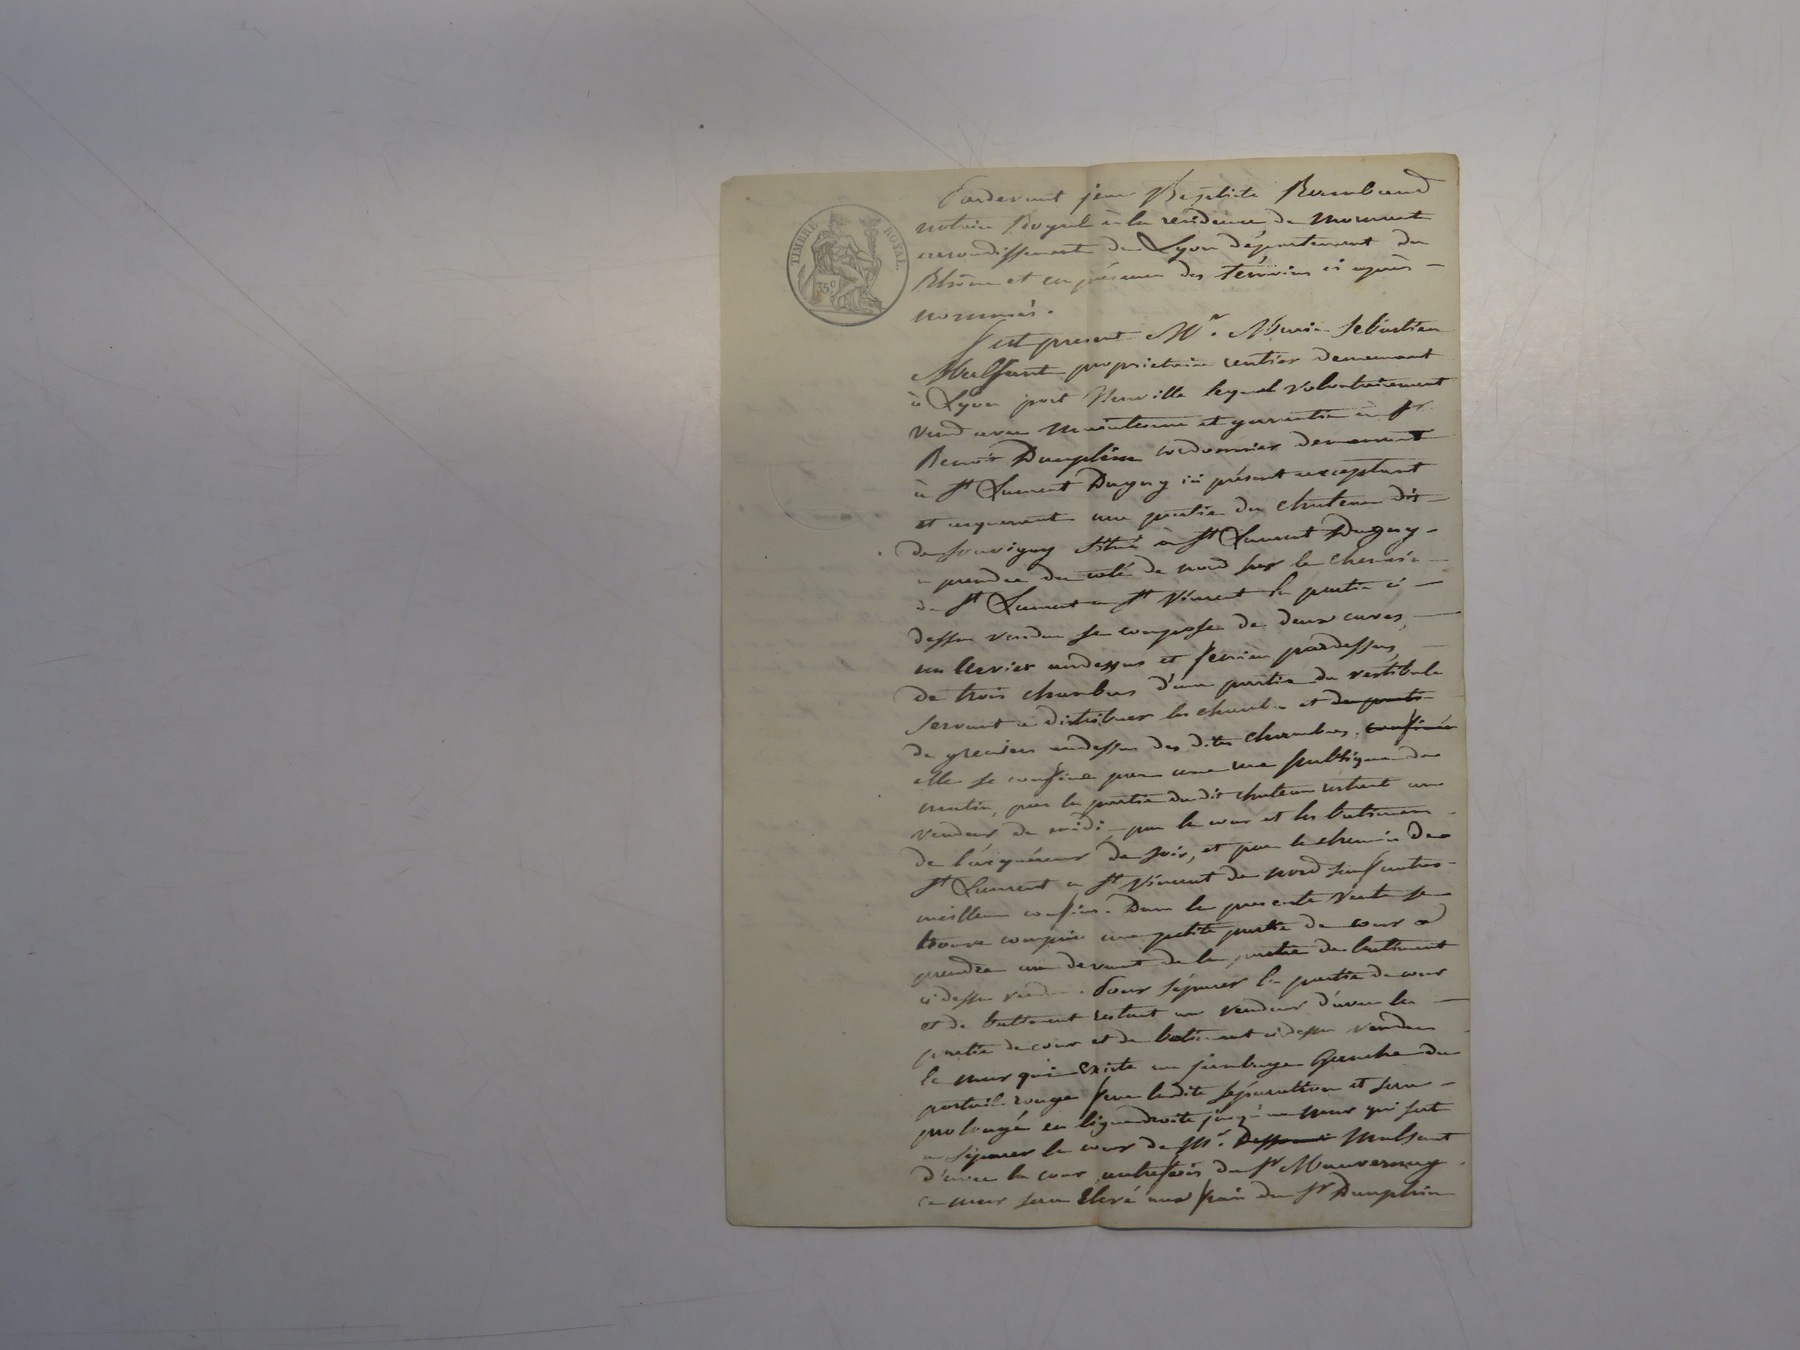 TIMBRE ROYAL.
35 c
Pardevant jean Baptiste Rambaud
notaire Royal à la residence de Mornant
arrondissement de Lyon département du
Rhône et en présence des témoins ci après
nommés.
Est present Mr. Marie Sébastien
Mulsant propriétaire rentier demeurant
à Lyon port Neuville lequel volontairement
vend avec maintenue et garantie à Sr
Benoit Dauphin cordonnier demeurant
à St Laurent Dagny ici présent acceptant
et acquerant une partie du chateau dit
de Souvigny situé à St Laurent Dagny
a prendre du coté de nord sur le chemin
de St Laurent a St Vincent la partie ci
dessu vendue se compose de deux caves,
un évier audessus et pardessus
de trois chambres d'une partie du véstibule
servant a distribuer les chambre et de partie
de greniers audessus des dites chambres. confinée
elle se confine par une rue publique de
matin, par la partie du dit chateau restant au
vendeur de midi, par la cour et les batimens
de l'acquéreur de soir, et par le chemin de
St Laurent a St Vincent de nord sauf autres
meilleurs confins. Dans la presente vente se
trouve comprise une petite partie de cour a
prendre au devant de la partie de batiment
ci dessu vendue. Pour séparer la partie de cour
et de batiment restant au vendeur d'avec la
partie de cour et de batiment ci dessu vendue
le mur qui existe au jambage gauche du
portail rouge fera ladite séparation et sera
prolongé en ligne droite jusqu'au mur qui sert
a séparer la cour de Mr. Mulsant
d'avec la cour autrefois du Sr Mauvernay
ce mur sera élevé aux frais du Sr Dauphin